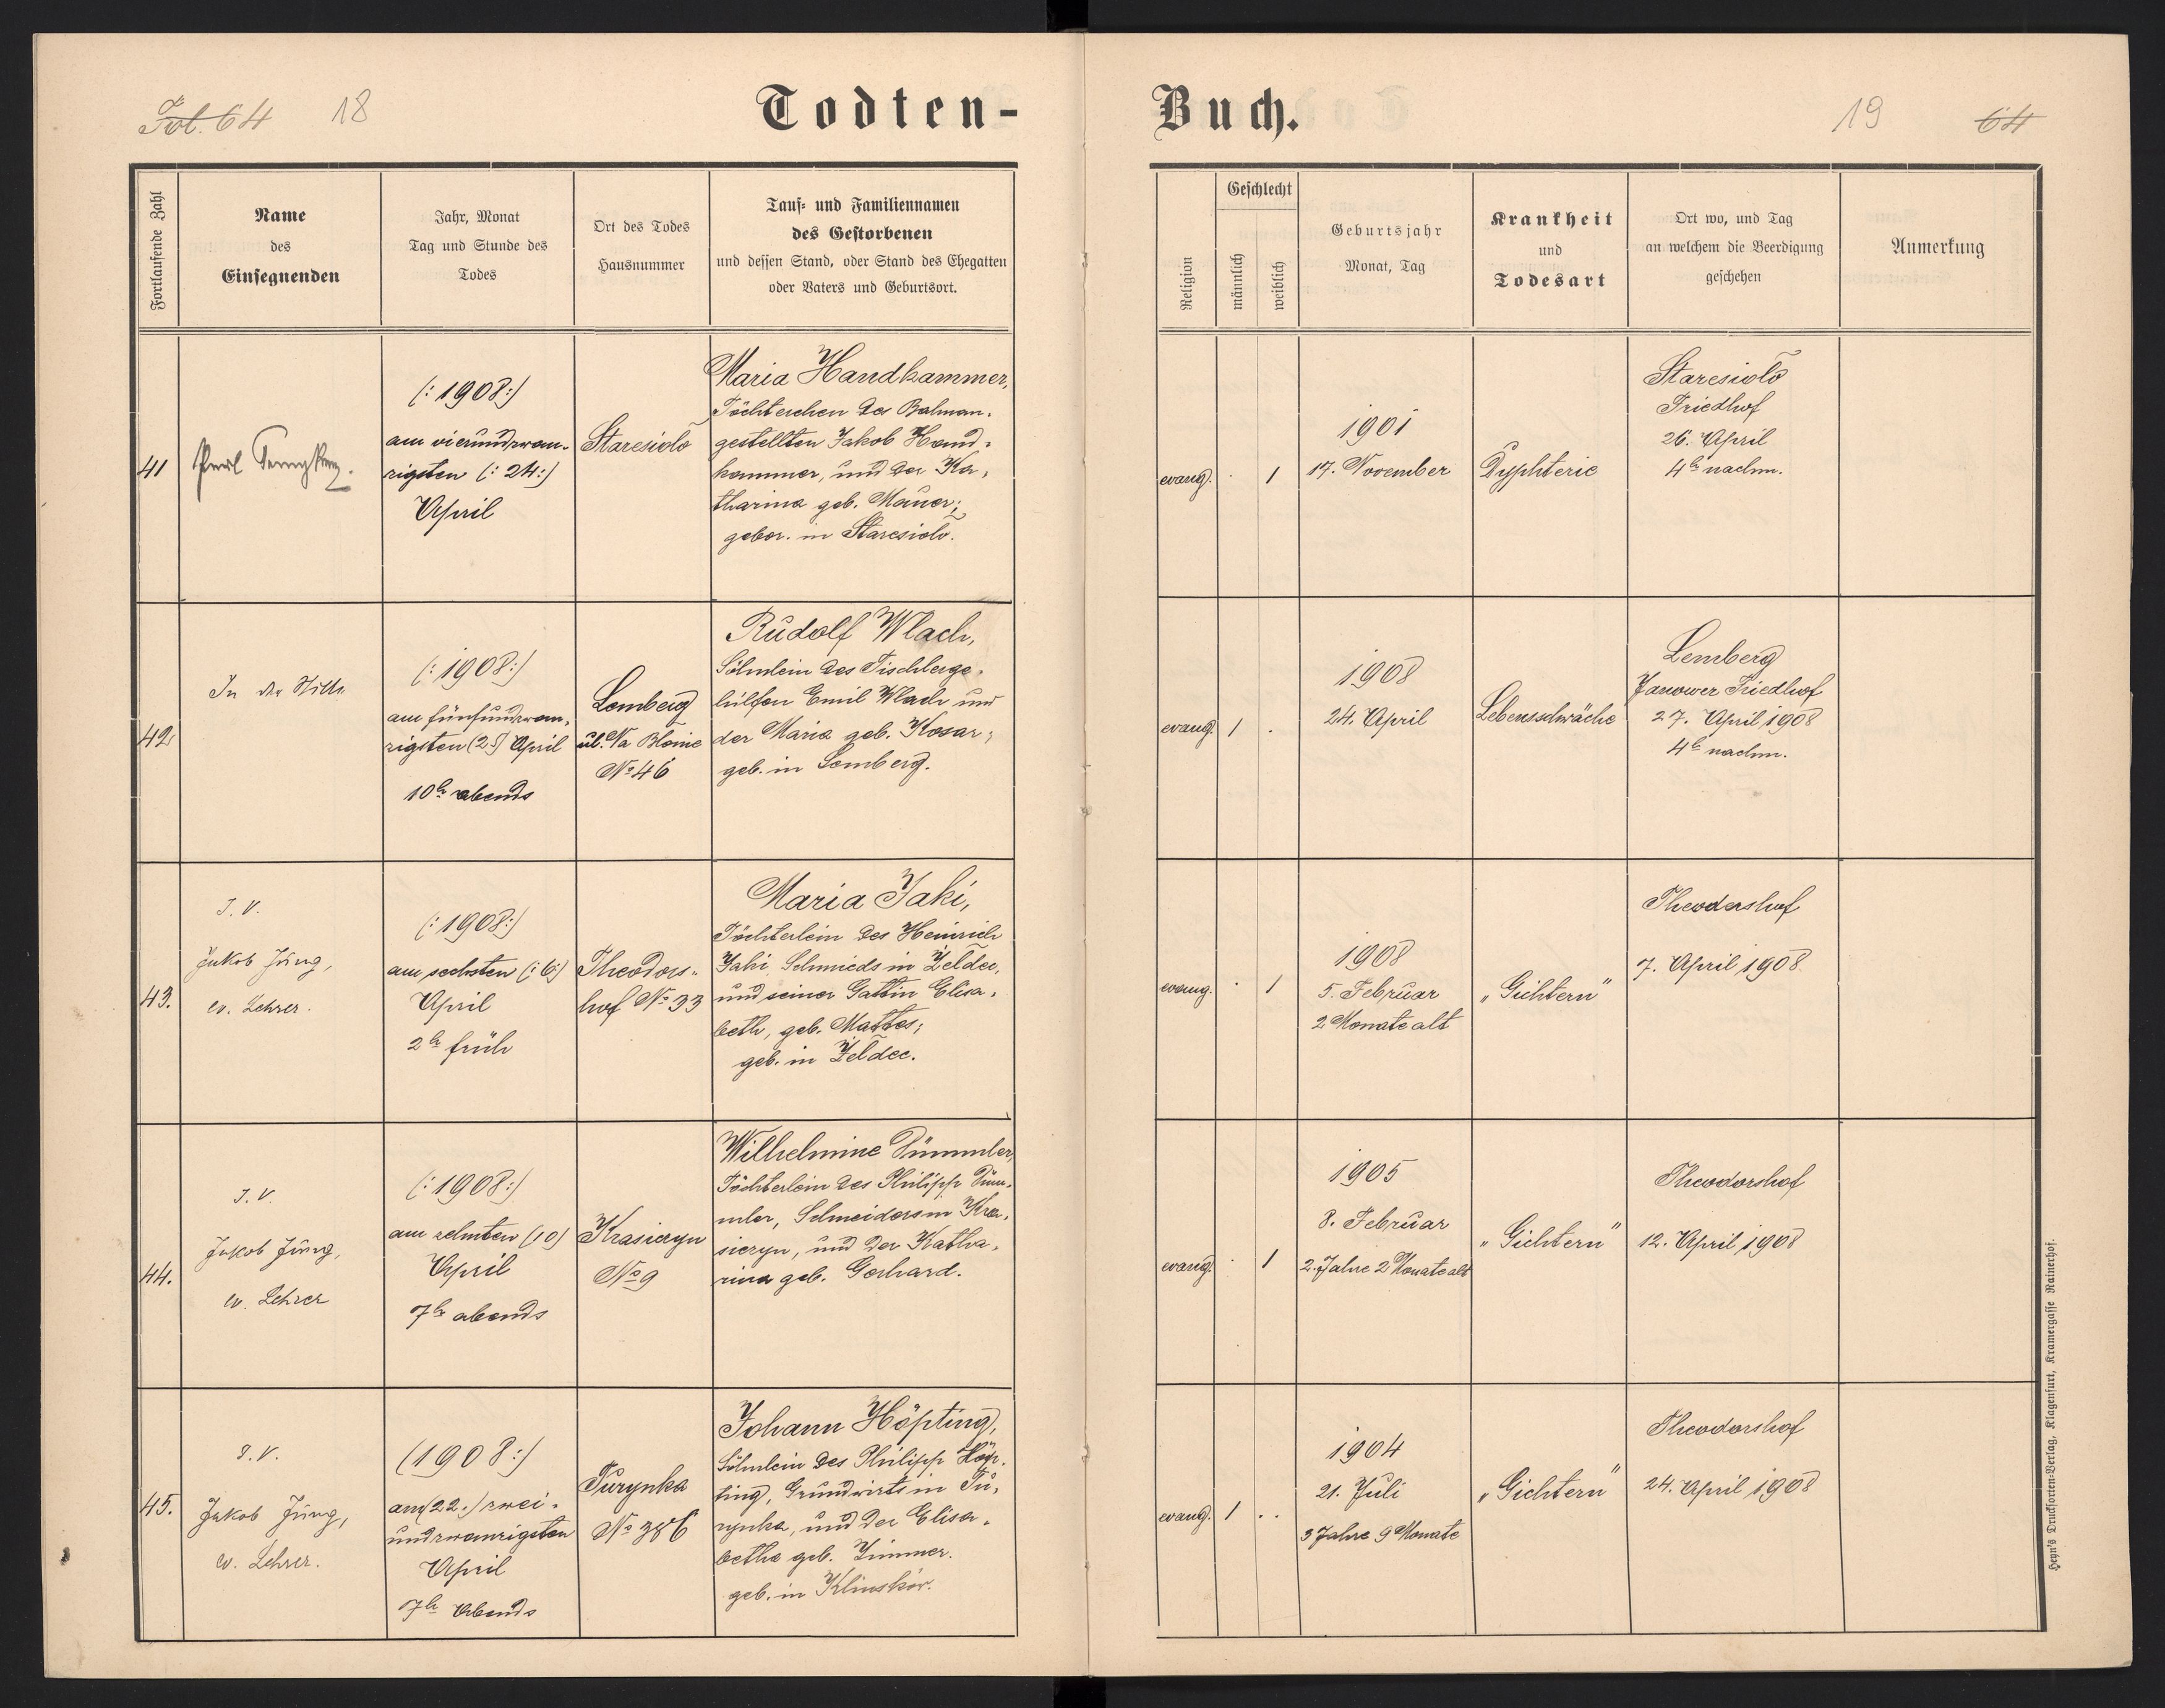 Fol. 64 18
Todten-
Fortlaufende Zahl
Name
des
Einsegnenden
Jahr, Monat
Tag und Stunde des
Todes
Ort des Todes
Hausnummer
Tauf- und Familiennamen
des Gestorbenen
und dessen Stand, oder Stand des Ehegatten
oder Vaters und Geburtsort.
41
(: 1908:)
am vierundzwan-
zigsten (: 24:)
April
Staresioło
Maria Handkammer,
Töchterchen des Bahnan-
gestellten Jakob Hand-
kammer, und der Ka-
tharina geb. Mauer;
gebor. in Staresioło.
42
In der Stille
(: 1908:)
am fünfundzwan-
zigsten (25) April
10h abends
Lemberg
ul. Na Błonie
No 46
Rudolf Wlach,
Söhnlein des Tischlerge-
hülfen Emil Wlach und
der Maria geb. Kosar;
geb. in Lemberg.
43.
I. V.
Jakob Jung,
ev. Lehrer.
(: 1908:)
am sechsten (: 6:)
April
2h früh
Theodors-
hof No 33
Maria Jaki,
Töchterlein des Heinrich
Jaki, Schmieds in Żełdec,
und seiner Gattin Elisa-
beth, geb. Mattes;
geb. in Żełdec.
44.
I. V.
Jakob Jung,
ev. Lehrer
(: 1908:)
am zehnten (10)
April
7h abends
Krasiczyn
No 9
Wilhelmine Dümmler,
Töchterlein des Philipp Düm-
mler, Schneiders in Kra-
siczyn, und der Katha-
rina geb. Gerhard.
45.
I. V.
Jakob Jung,
ev. Lehrer.
(1908:)
am (22.) zwei-
undzwanzigsten
April
7h Abends
Turynka
No 386
Johann Höpting,
Söhnlein des Philipp Höp-
ting, Grundwirts in Tu-
rynka, und der Elisa-
betha geb. Zimmer.
geb. in
Buch.
19 64
Religion
Geschlecht
männlich
weiblich
Geburtsjahr
Monat, Tag
Krankheit
und
Todesart
Ort wo, und Tag
an welchem die Beerdigung
geschehen
Anmerkung
evang. . 1
1901
17. November
Dyphterie
Staresioło
Friedhof
26. April
4h nachm.
evang. 1 .
1908
24. April
Lebensschwäche
Lemberg
Janower Friedhof
27. April 1908
4h nachm.
evang. . 1
1908
5. Februar
2 Monate alt
„Gichtern"
Theodorshof
7. April 1908.
evang. . 1
1905
8. Februar
2. Jahre 2 Monate alt
„Gichtern"
Theodorshof
12. April 1908
evang. 1 . .
1904
21. Juli
3 Jahre 9 Monate
„Gichtern"
Theodorshof
24. April 1908
Heyn's Drucksorten-Verlag, Klagenfurt, Kramergasse Rainerhof.